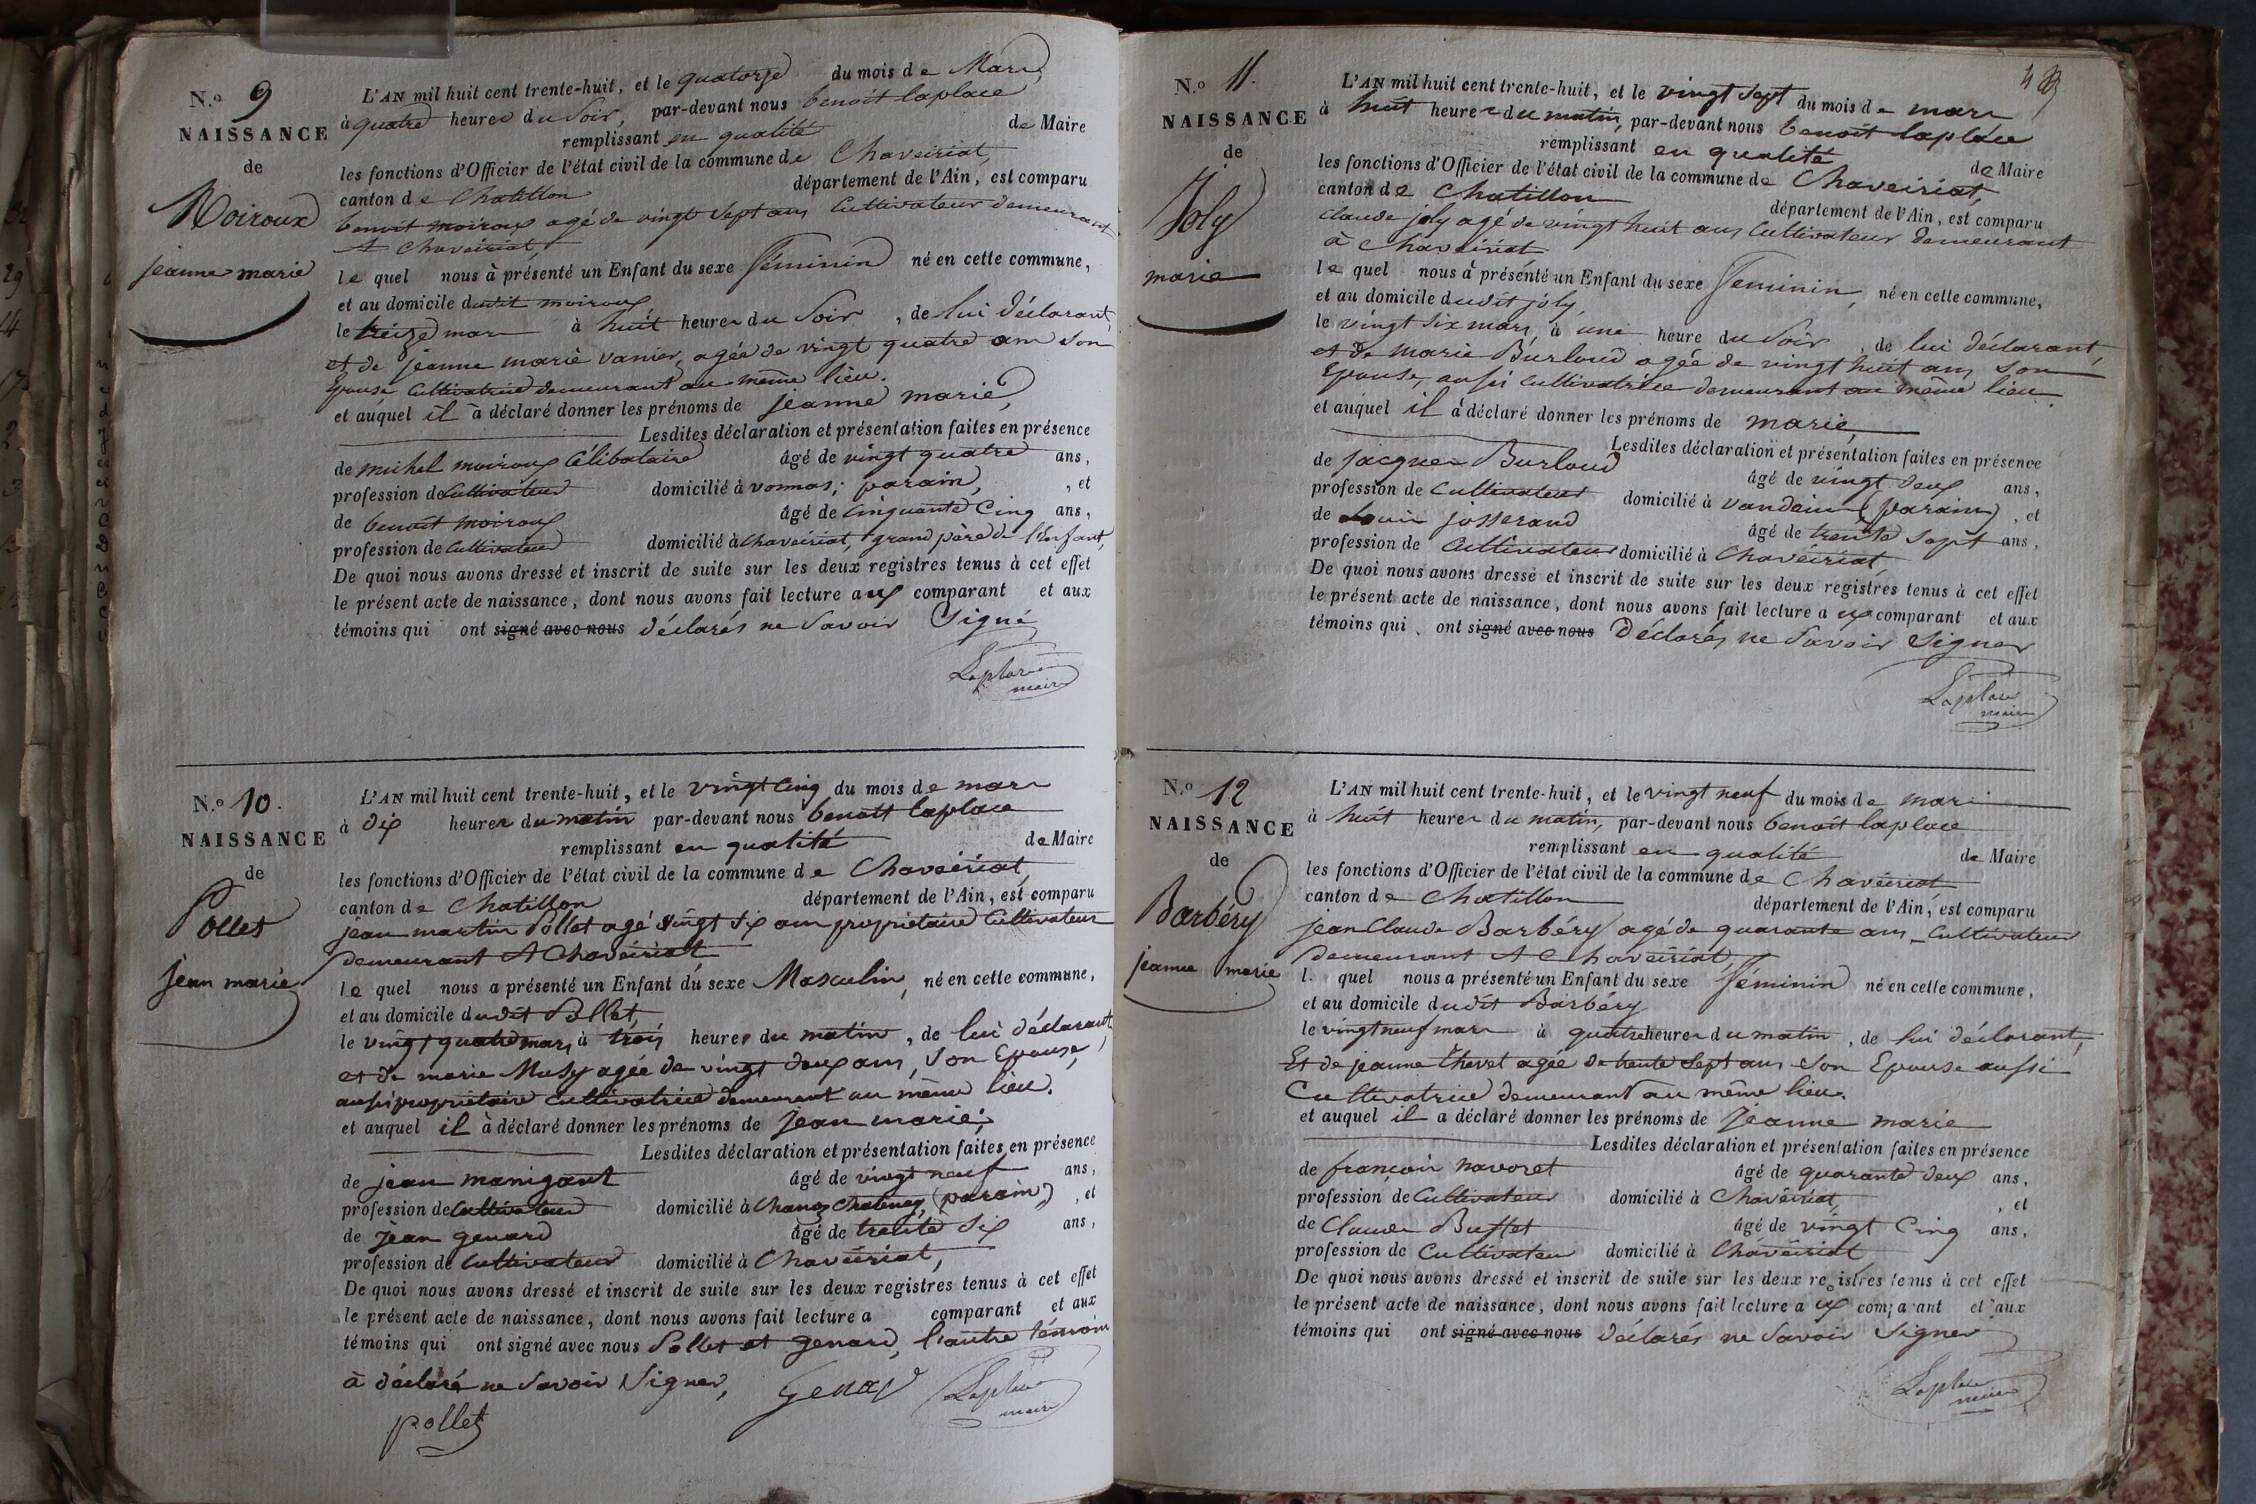 N.o 9
NAISSANCE
de
Moiroux
jeanne marie
L'AN mil huit cent trente-huit, et le quatorze du mois de Mars
à quatre heures du Soir, par-devant nous benoit laplace
remplissant en qualité de Maire
les fonctions d'Officier de l'état civil de la commune de Chaveiriat,
canton de Chatillon département de l'Ain, est comparu
benoit moiroux agé de vingt Sept ans Cultivateur demeurant
A Chaveiriat,
le quel nous à présenté un Enfant du sexe féminin né en cette commune,
et au domicile dudit moiroux
le treize mars à huit heures du Soir, de lui déclarant,
et de jeanne marie vanier, agée de vingt quatre ans Son
Epouse Cultivatrice demeurant au même lieu.
et auquel il à déclaré donner les prénoms de jeanne marie,
Lesdites déclaration et présentation faites en présence
de michel moiroux Célibataire âgé de vingt quatre ans,
profession de Cultivateur domicilié à vonnas; parain, , et
de benoit moiroux âgé de Cinquante Cinq ans,
profession de Cultivateur domicilié à Chaveiriat, grand père de l'Enfant,
De quoi nous avons dressé et inscrit de suite sur les deux registres tenus à cet effet
le présent acte de naissance, dont nous avons fait lecture aux comparant et aux
témoins qui ont signé avec nous déclarés ne Savoir Signé
Laplace
maire
N.o 10.
NAISSANCE
de
Pollet
jean marie
L'AN mil huit cent trente-huit, et le vingt Cinq du mois de mars
à dix heures du matin par-devant nous benoit laplace
remplissant en qualité de Maire
les fonctions d'Officier de l'état civil de la commune de Chaveiriat,
canton de Chatillon département de l'Ain, est comparu
jean martin Pollet agé vingt Six ans propriétaire Cultivateur
demeurant A Chaveiriat
le quel nous a présenté un Enfant du sexe Masculin, né en cette commune,
et au domicile dudit Pollet,
le vingt quatre mars, à trois heures du matin, de lui déclarant
et de marie Musy agée de vingt deux ans, Son Epouse,
aussi propriétaire Cultivatrice demeurant au même lieu.
et auquel il à déclaré donner les prénoms de jean marie;
Lesdites déclaration et présentation faites en présence
de jean manigant âgé de vingt neuf ans,
profession de Cultivateur domicilié à Chanoz Chatenay, (parain) , et
de jean genard âgé de trente Six ans,
profession de Cultivateur domicilié à Chaveiriat,
De quoi nous avons dressé et inscrit de suite sur les deux registres tenus à cet effet
le présent acte de naissance, dont nous avons fait lecture a comparant et aux
témoins qui ont signé avec nous Pollet et genard, l'autre témoin
à déclaré ne Savoir Signer,
Genard
Laplace
maire
pollet
N.o 11.
NAISSANCE
de
Joly
marie
L'AN mil huit cent trente-huit, et le vingt Sept du mois de mars
à huit heures du matin, par-devant nous benoit laplace
remplissant en qualité de Maire
les fonctions d'Officier de l'état civil de la commune de Chaveiriat,
canton de Chatillon département de l'Ain, est comparu
claude joly agé de vingt huit ans Cultivateur demeurant
à Chaveiriat
le quel nous à présenté un Enfant du sexe féminin, né en cette commune,
et au domicile dudit joly,
le vingt Six mars, à une heure du Soir, de lui déclarant,
et de Marie Burloud agée de vingt huit ans, Son
Epouse, aussi Cultivatrice demeurant au même lieu.
et auquel il à déclaré donner les prénoms de marie,
Lesdites déclaration et présentation faites en présence
de jacques Burloud âgé de vingt deux ans,
profession de Cultivateur domicilié à vandeins (parain) , et
de Louis josserand âgé de trente Sept ans,
profession de Cultivateur domicilié à Chaveiriat,
De quoi nous avons dressé et inscrit de suite sur les deux registres tenus à cet effet
le présent acte de naissance, dont nous avons fait lecture a ux comparant et aux
témoins qui ont signé avec nous Déclarés ne Savoir Signer
Laplace
maire
N.o 12
NAISSANCE
de
Barbéry
jeanne marie
L'AN mil huit cent trente-huit, et le vingt neuf du mois de mars
à huit heures du matin, par-devant nous benoit laplace
remplissant en qualité de Maire
les fonctions d'Officier de l'état civil de la commune de Chaveiriat
canton de Chatillon département de l'Ain, est comparu
jean Claude Barbéry agé de quarante ans, Cultivateur
demeurant A Chaveiriat,
l. quel nous a présenté un Enfant du sexe féminin né en cette commune,
et au domicile dudit Barbéry
le vingt neuf mars à quatre heures du matin, de lui déclarant,
Et de jeanne thevet agée de trente Sept ans Son Epouse aussi
Cultivatrice demeurant au même lieu.
et auquel il a déclaré donner les prénoms de jeanne marie
Lesdites déclaration et présentation faites en présence
de françois navoret âgé de quarante deux ans,
profession de Cultivateur domicilié à Chaveiriat, , et
de Claude Buffet âgé de vingt Cinq ans,
profession de Cultivateur domicilié à Chaveiriat
De quoi nous avons dressé et inscrit de suite sur les deux registres tenus à cet effet
le présent acte de naissance, dont nous avons fait lecture a ux comparant et aux
témoins qui ont signé avec nous déclarés ne Savoir Signer
Laplace
maire